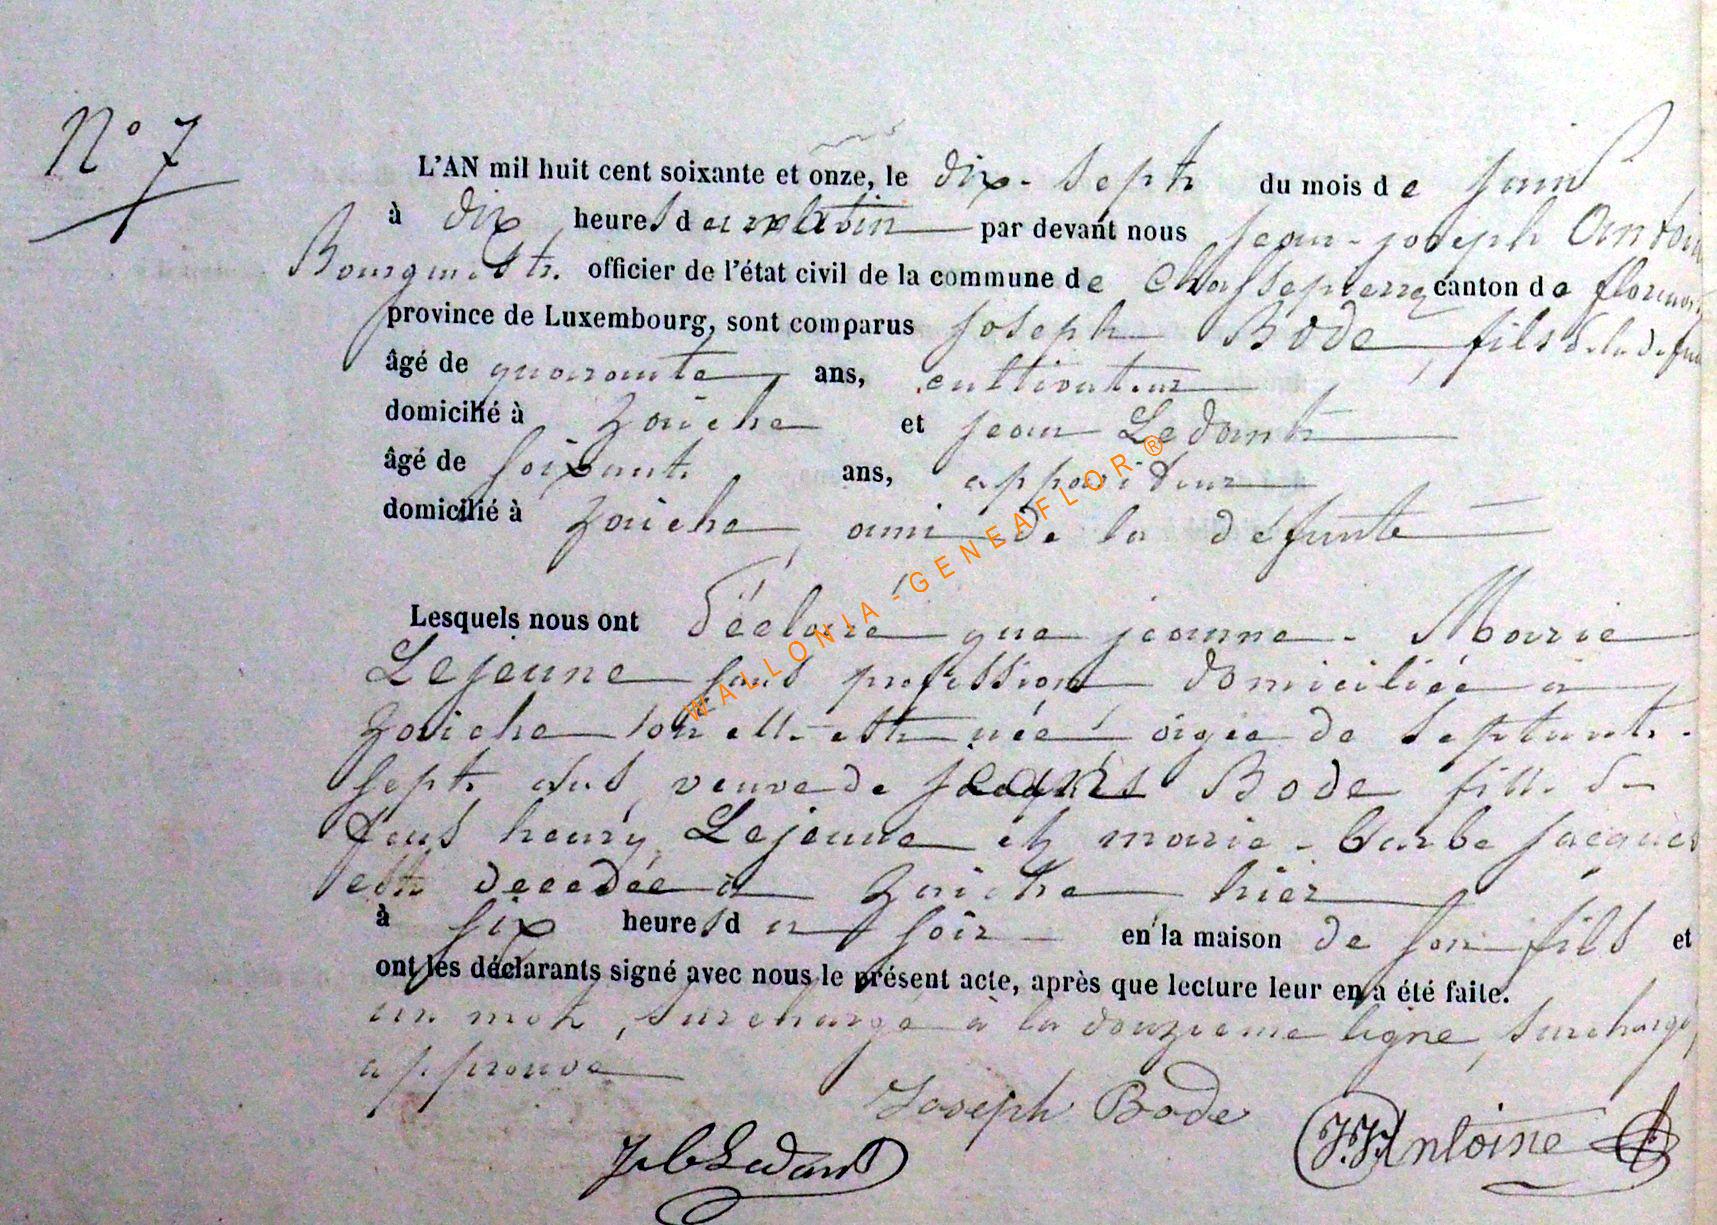 N° 7
L'AN mil huit cent soixante et onze, le dix-sept du mois de juin
à dix heures du matin par devant nous jean-joseph Antoine
Bourgmestre officier de l'état civil de la commune de Chassepierre canton de florenville
province de Luxembourg, sont comparus joseph Bode, fils de la defunte
âgé de quarante ans, cultivateur
domicilié à Zaiche et jean Ledant
âgé de soixante ans, appariteur
domicilié à Zaiche, ami de la défunte
Lesquels nous ont déclaré que jeanne-Marie
Lejeune sans profession domiciliée à
Zaiche où elle est née âgée de septante-
sept ans veuve de Bode fille de
feus henry Lejeune et marie-barbe jacques
est decedée à Zaiche hier
à six heures du soir en la maison de son fils et
ont les déclarants signé avec nous le présent acte, après que lecture leur en a été faite.
un mot, surchargé à la douzieme ligne, surcharge
approuvé
Joseph Bode
Ledant
J.J. Antoine
WALLONIA - GENEAFLOR ®